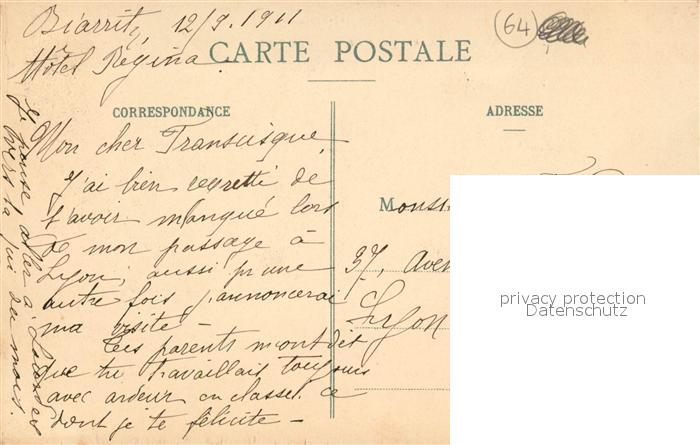 Biarritz, 12/9. 1911
Hôtel Régina.
64
CARTE POSTALE
CORRESPONDANCE
ADRESSE
Mon cher
J'ai bien regretté de
t'avoir manqué lors
de mon passage à
Lyon, aussi pr une
autre fois j'annoncerai
ma visite –
Tes parents m'ont dit
que tu travaillais toujours
avec ardeur en classe, ce
dont je te félicite –
Je pense aller à
vers la fin du mois.
Monsi
37, Aven
Lyon
privacy protection
Datenschutz